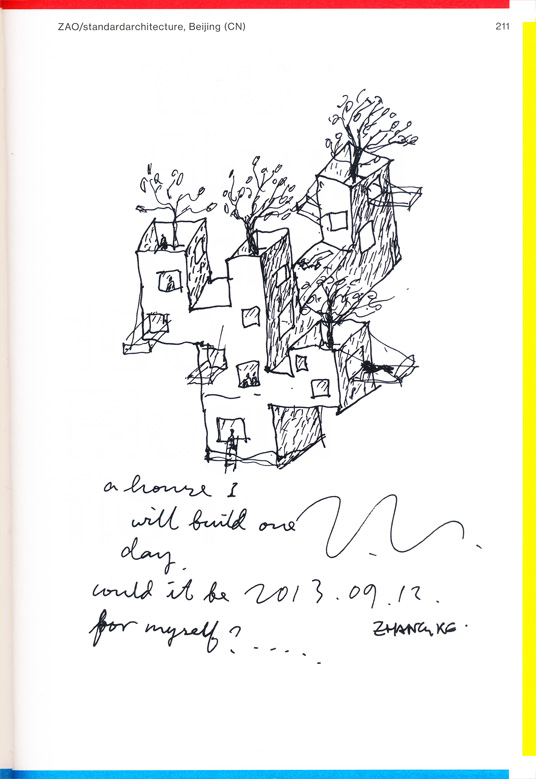 ZAO/standardarchitecture, Beijing (CN)
211
a house I
will build one
day.
would it be 2013.09.12.
for myself?.....
ZHANG KE.